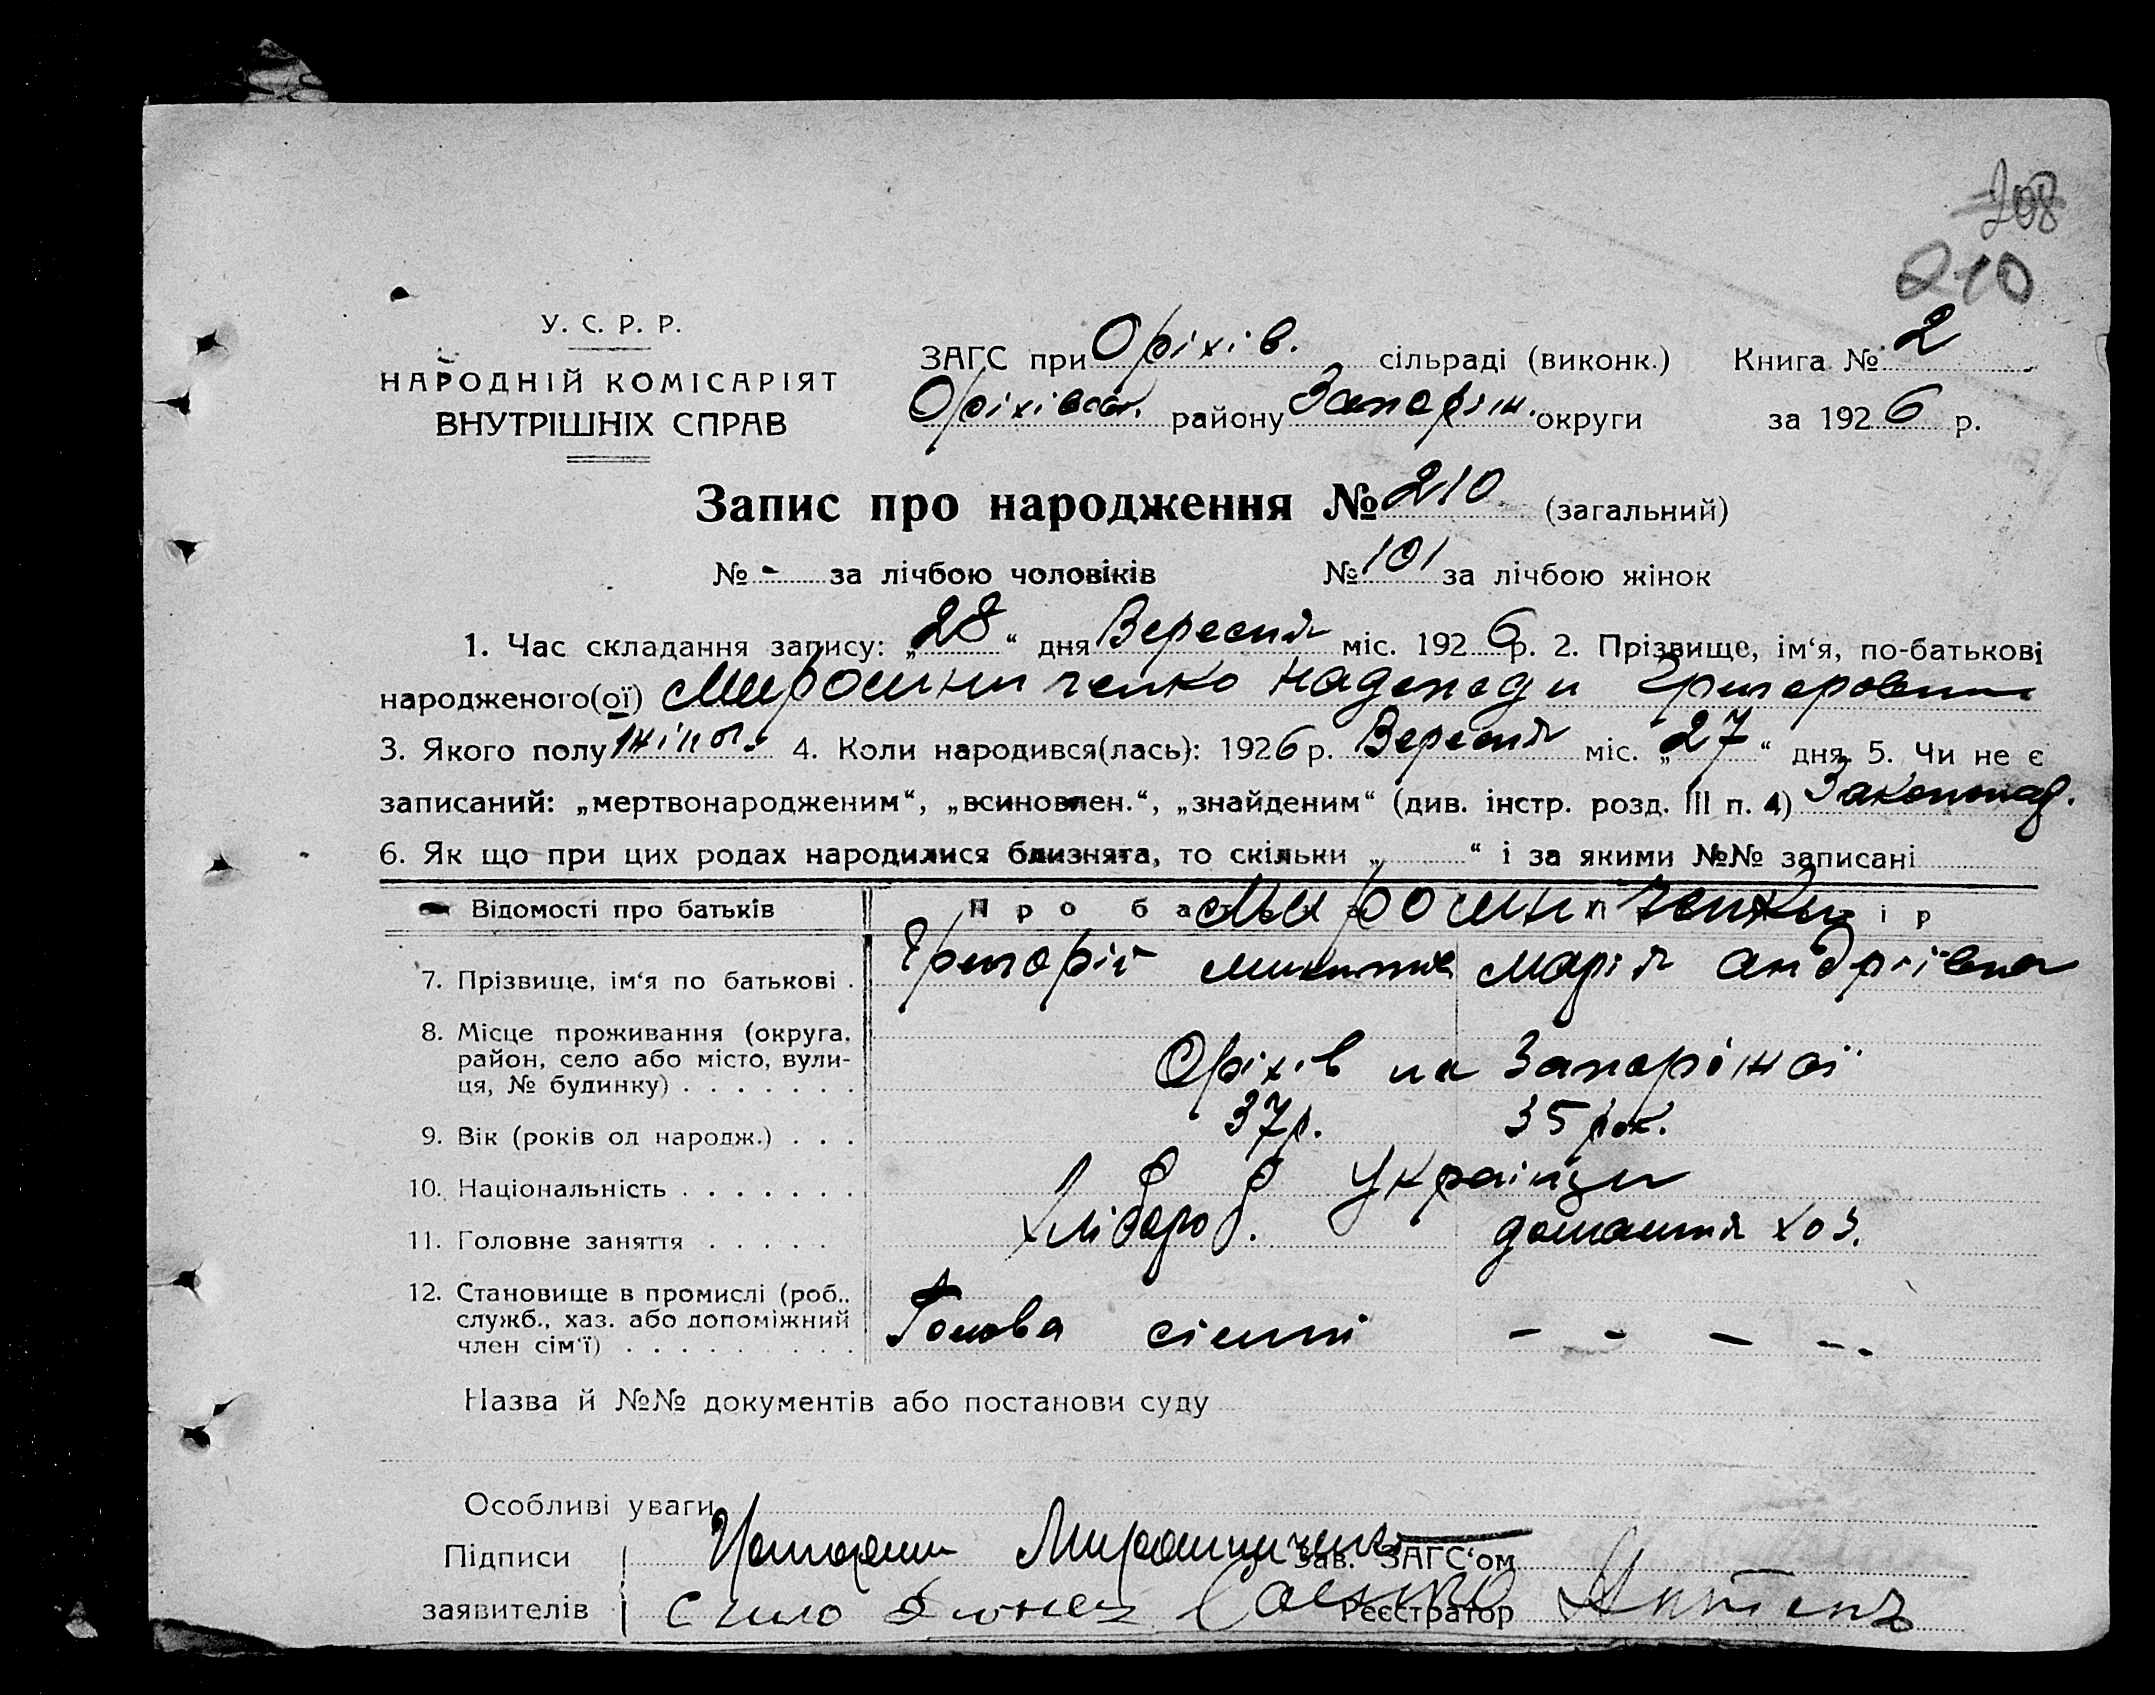 208
210
У. С. Р. Р.
НАРОДНІЙ КОМІСАРІЯТ
ВНУТРІШНІХ СПРАВ
ЗАГС при Оріхів. сільраді (виконк.) Книга № 2
Оріхівськ. району Запоріж. округи за 1926 р.
Запис про народження № 210 (загальний)
№ - за лічбою чоловіків № 101 за лічбою жінок
1. Час складання запису: „28“ дня Вересня міс. 1926 р. 2. Прізвище, ім‘я, по-батькові
народженого(ої) Мирошниченко Надежди Григоровни
3. Якого полу жіноч. 4. Коли народився(лась): 1926 р. Вересня міс. „27“ дня. 5. Чи не є
записаний: „мертвонародженим“, „всиновлен.“, „знайденим“ (див. інстр. розд. III п. 4) Законнар.
6. Як що при цих родах народилися близнята, то скільки „ “ і за якими №№ записані
Відомості про батьків Про батьків Мирошниченки
7. Прізвище, ім‘я по батькові . Григорій Микитів Марія Андріївна
8. Місце проживання (округа, район, село або місто, вули-
ця, № будинку) . . . . . . . Оріхів на Запоріжої
9. Вік (років од народж.) . . . 37 р. 35 рок.
10. Національність . . . . . . . Українци
11. Головне заняття . . . . . Хлібороб. домашня хоз.
12. Становище в промислі (роб.,
служб., хаз. або допоміжний
член сім‘ї) . . . . . . . . . Голова сіммі - - - - -
Назва й №№ документів або постанови суду
Особливі уваги
Підписи Мирошниченко Зав. ЗАГС‘ом
заявителів Реєстратор